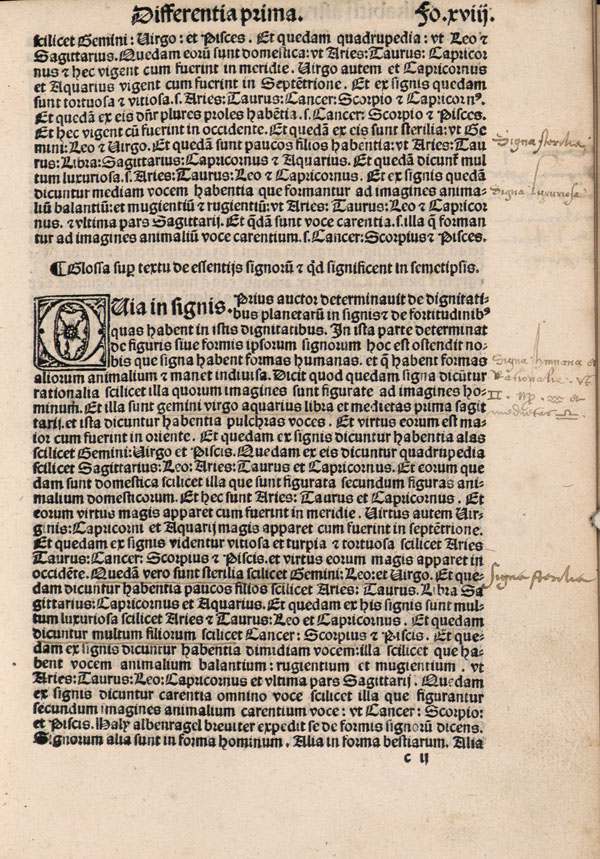 Differentia prima. Fo.xviij.
scilicet Gemini: Uirgo: et Pisces. Et quedam quadrupedia: vt Leo ⁊
Sagittarius. Quedam eorū sunt domestica: vt Aries: Taurus: Capricor
nus ⁊ hec vigent cum fuerint in meridie. Uirgo autem et Capricornus
et Aquarius vigent cum fuerint in Septētrione. Et ex signis quedam
sunt tortuosa ⁊ vitiosa.s. Aries: Taurus: Cancer: Scorpio ⁊ Capricornꝰ.
Et quedā ex eis dn̄r plures proles habētia.s. Cancer: Scorpio ⁊ Pisces.
Et hec vigent cū fuerint in occidente. Et quedā ex eis sunt sterilia: vt Ge
mini: Leo ⁊ Uirgo. Et quedā sunt paucos filios habentia: vt Aries: Tau
rus: Libra: Sagittarius: Capricornus ⁊ Aquarius. Et quedā dicunt̄ mul
tum luxuriosa.s. Aries: Taurus: Leo ⁊ Capricornus. Et ex signis quedā
dicuntur mediam vocem habentia que formantur ad imagines anima-
liū balantiū: et mugientiū ⁊ rugientiū: vt Aries: Taurus: Leo ⁊ Capricor
nus. ⁊ vltima pars Sagittarij. Et q̄dā sunt voce carentia.s.illa q̄ forman
tur ad imagines animaliū voce carentium.s. Cancer: Scorpius ⁊ Pisces.
¶ Glossa suꝑ textu de essentijs signorū ⁊ qd̄ significent in semetipsis.
QUia in signis. Prius auctor determinauit de dignitati-
bus planetarū in signis ⁊ de fortitudinibꝰ
quas habent in istis dignitatibus. In ista parte determinat
de figuris siue formis ipsorum signorum hoc est ostendit no-
bis que signa habent formas humanas. et q̄ habent formas
aliorum animalium ⁊ manet indiuisa. Dicit quod quedam signa dicūtur
rationalia scilicet illa quorum imagines sunt figurate ad imagines ho-
minum. Et illa sunt gemini virgo aquarius libra et medietas prima sagit
tarij. et ista dicuntur habentia pulchras voces. Et virtus eorum est ma-
ior cum fuerint in oriente. Et quedam ex signis dicuntur habentia alas
scilicet Gemini: Uirgo et Piscis. Quedam ex eis dicuntur quadrupedia
scilicet Sagittarius: Leo: Aries: Taurus et Capricornus. Et eorum que
dam sunt domestica scilicet illa que sunt figurata secundum figuras ani-
malium domesticorum. Et hec sunt Aries: Taurus et Capricornus. Et
eorum virtus magis apparet cum fuerint in meridie. Uirtus autem Uir-
ginis: Capricorni et Aquarij magis apparet cum fuerint in septētrione.
Et quedam ex signis videntur vitiosa et turpia ⁊ tortuosa scilicet Aries
Taurus: Cancer: Scorpius ⁊ Piscis. et virtus eorum magis apparet in
occidēte. Quedā vero sunt sterilia scilicet Gemini: Leo: et Uirgo. Et que-
dam dicuntur habentia paucos filios scilicet Aries: Taurus. Libra Sa
gittarius: Capricornus et Aquarius. Et quedam ex his signis sunt mul-
tum luxuriosa scilicet Aries ⁊ Taurus: Leo et Capricornus. Et quedam
dicuntur multum filiorum scilicet Cancer: Scorpius ⁊ Piscis. Et que-
dam ex signis dicuntur habentia dimidiam vocem: illa scilicet que ha-
bent vocem animalium balantium: rugientium et mugientium. vt
Aries: Taurus: Leo: Capricornus et vltima pars Sagittarij. Quedam
ex signis dicuntur carentia omnino voce scilicet illa que figurantur
secundum imagines animalium carentium voce: vt Cancer: Scorpio:
et Piscis. Haly albenragel breuiter expedit se de formis signorū dicens.
Signorum alia sunt in forma hominum. Alia in forma bestiarum. Alia
c ij
Signa sterilia
Signa luxuriosa
Signa humana et
Rationalia. vt
♊ ♍ ♒ et
medietas
Signa sterilia